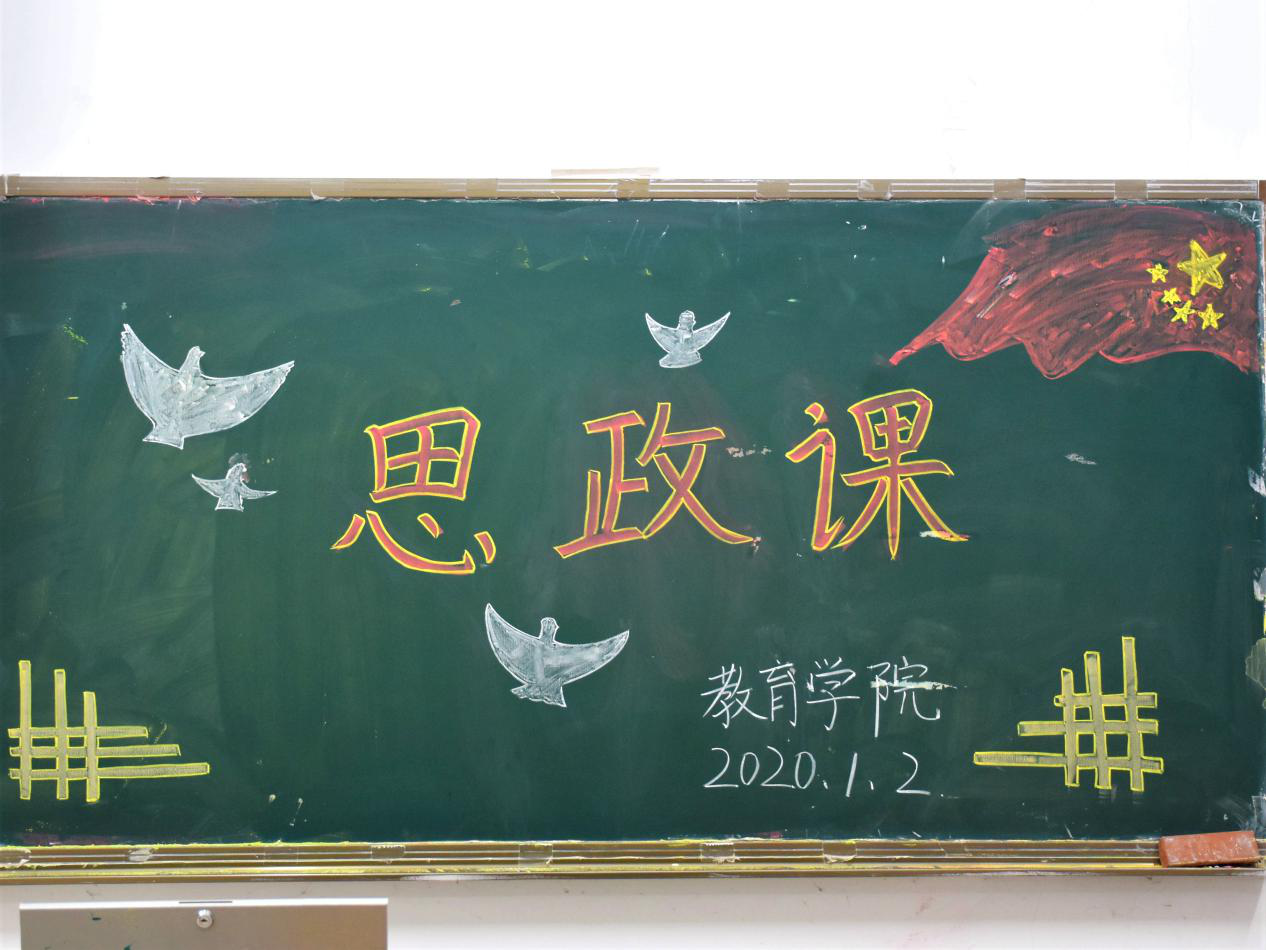 思政课
教育学院
2020.1.2